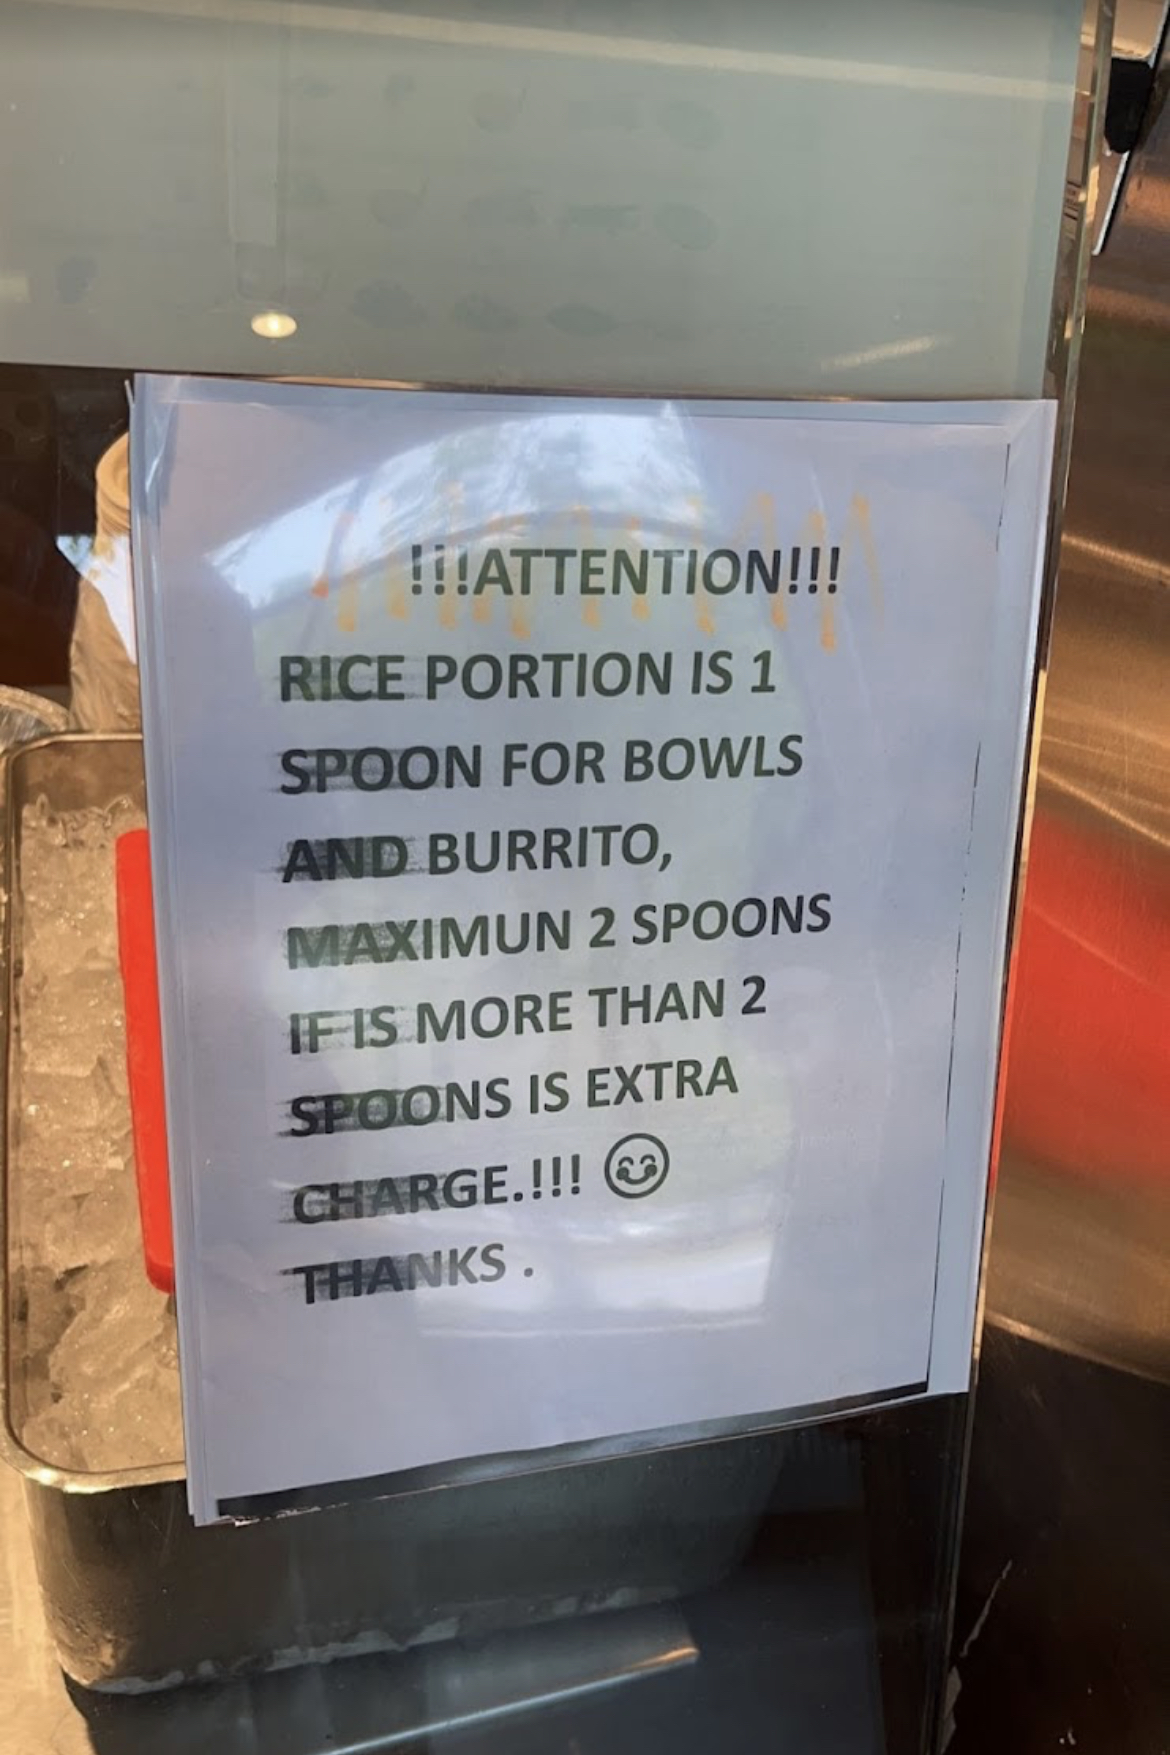 !!!ATTENTION!!!
RICE PORTION IS 1
SPOON FOR BOWLS
AND BURRITO,
MAXIMUN 2 SPOONS
IF IS MORE THAN 2
SPOONS IS EXTRA
CHARGE.!!! 😊
THANKS .